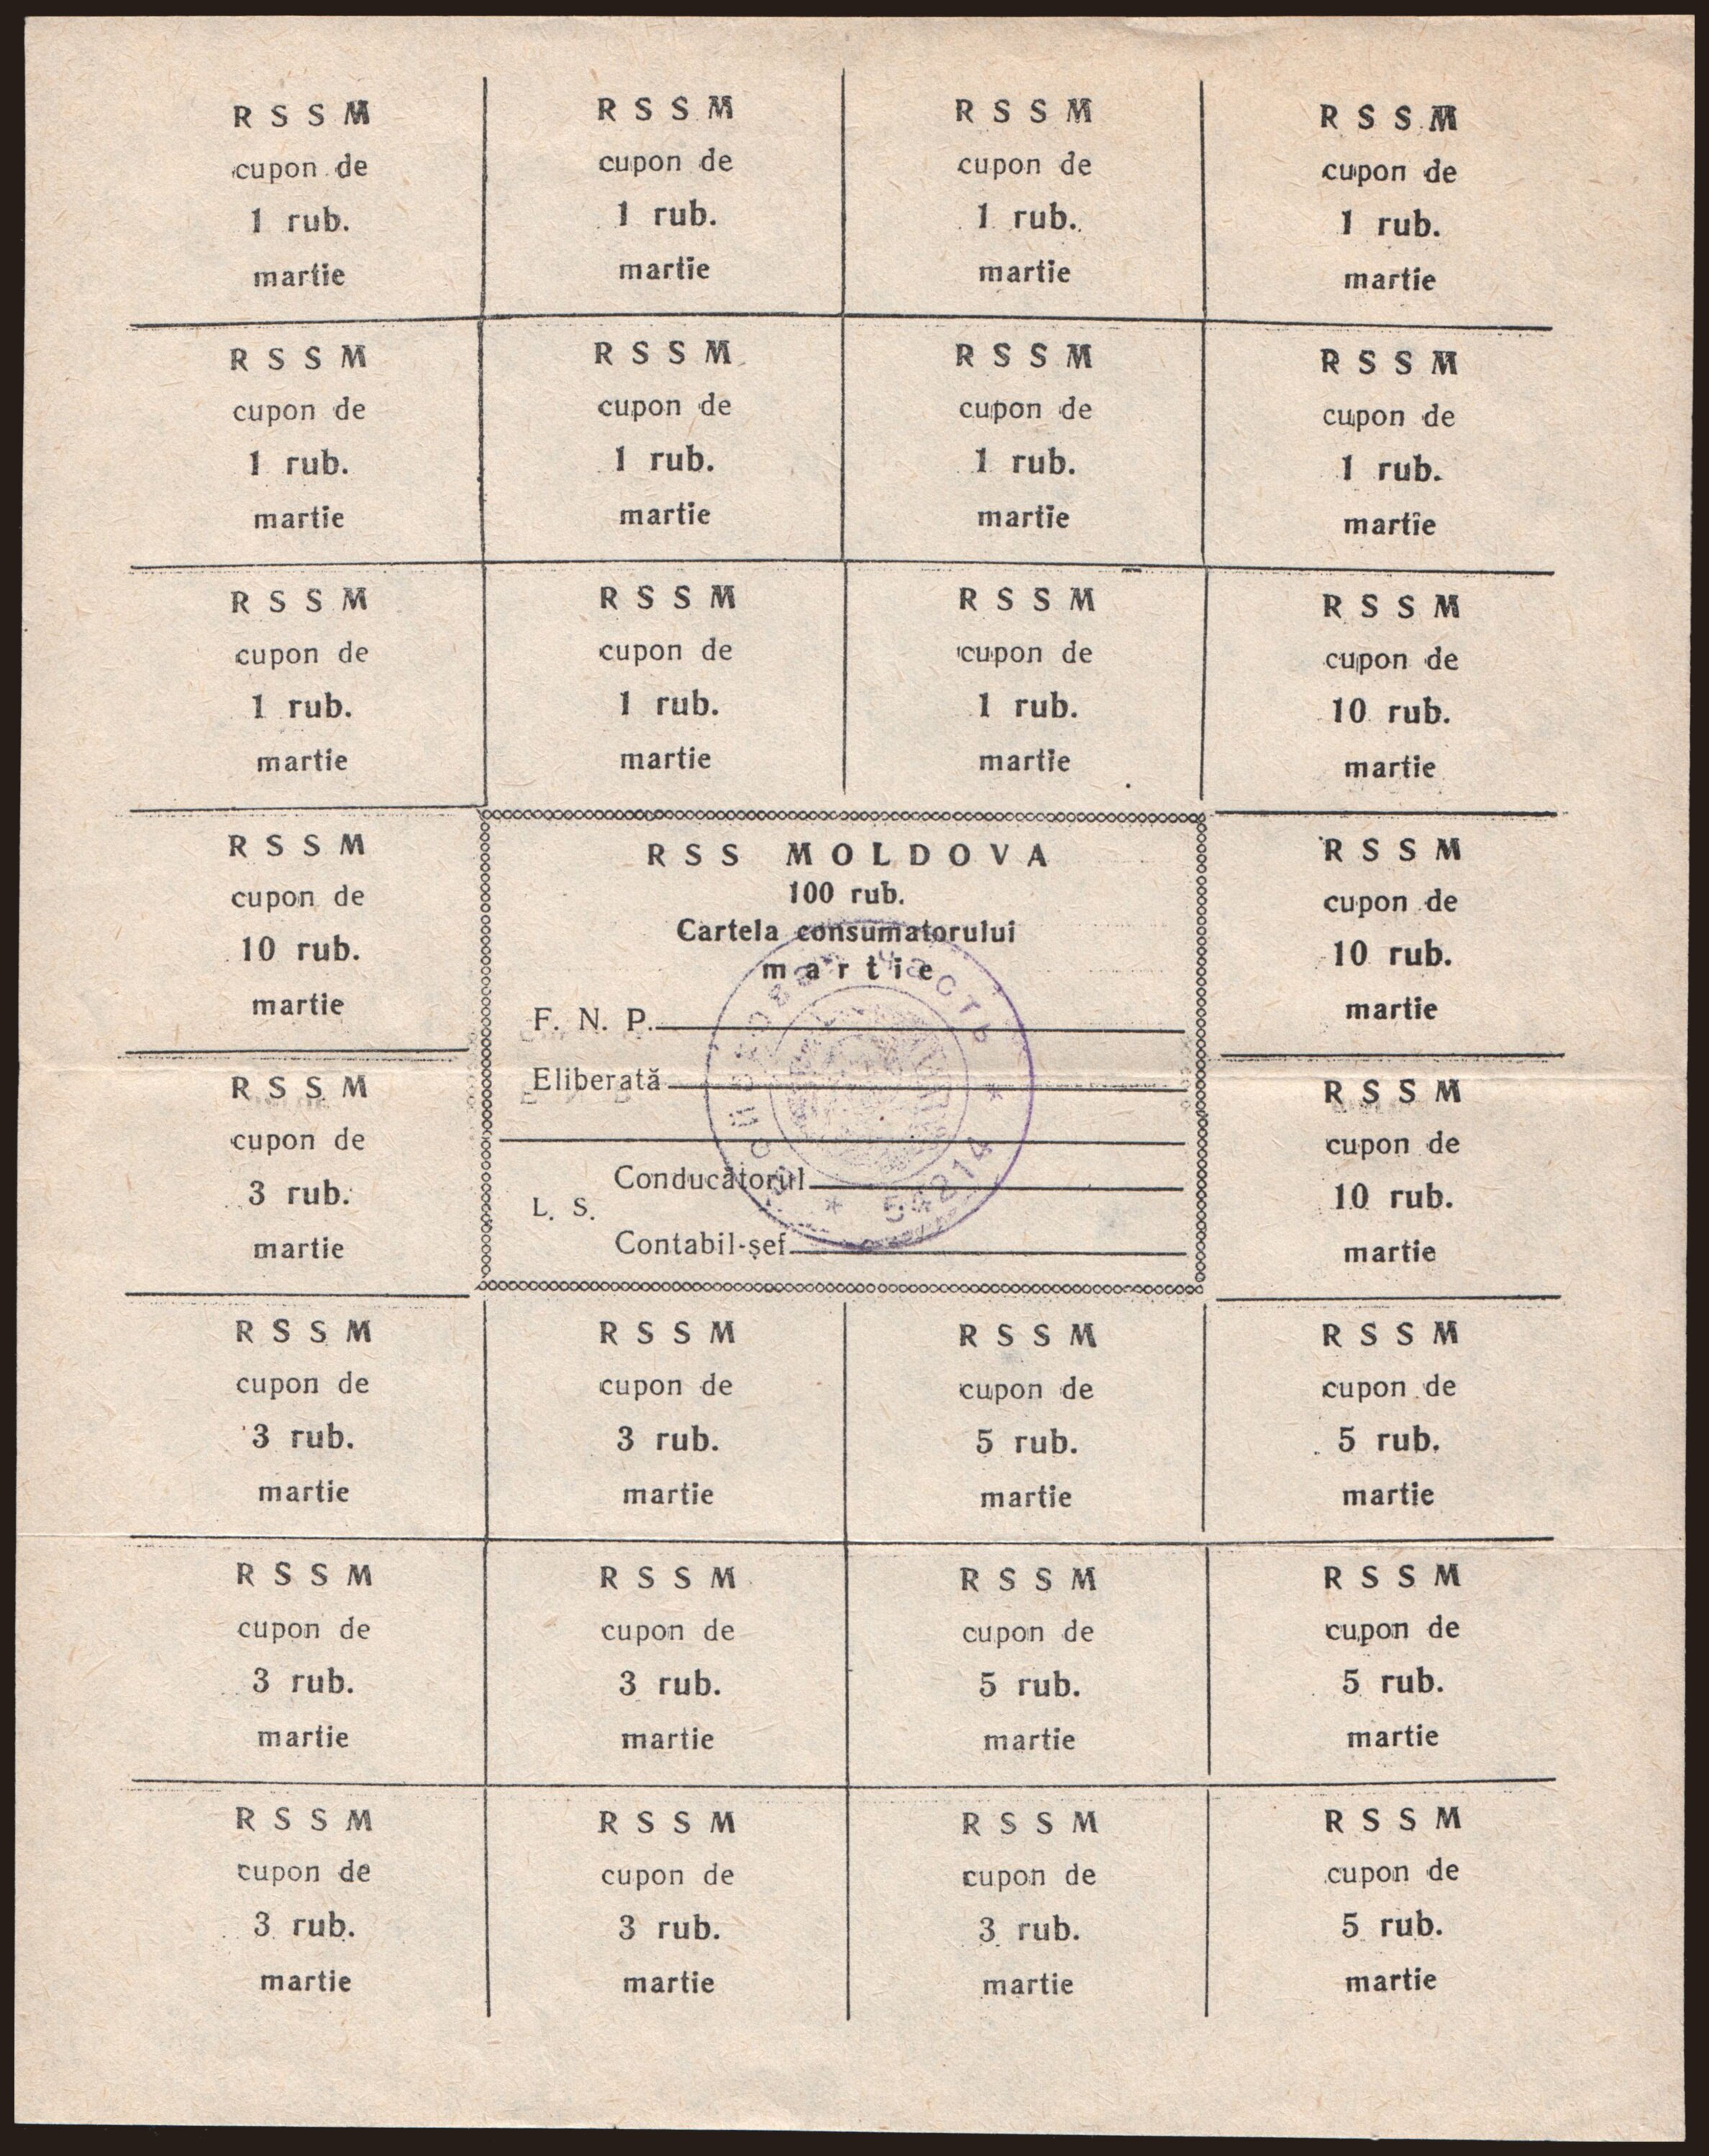 R S S M
cupon de
1 rub.
martie
R S S M
cupon de
1 rub.
martie
R S S M
cupon de
1 rub.
martie
R S S M
cupon de
1 rub.
martie
R S S M
cupon de
1 rub.
martie
R S S M
cupon de
1 rub.
martie
R S S M
cupon de
1 rub.
martie
R S S M
cupon de
1 rub.
martie
R S S M
cupon de
1 rub.
martie
R S S M
cupon de
1 rub.
martie
R S S M
cupon de
1 rub.
martie
R S S M
cupon de
10 rub.
martie
R S S M
cupon de
10 rub.
martie
RSS MOLDOVA
100 rub.
Cartela consumatorului
martie
F. N. P.
Eliberată
Conducătorul
L. S.
Contabil-şef
войсковая часть
R S S M
cupon de
10 rub.
martie
R S S M
cupon de
3 rub.
martie
R S S M
cupon de
10 rub.
martie
R S S M
cupon de
3 rub.
martie
R S S M
cupon de
3 rub.
martie
R S S M
cupon de
5 rub.
martie
R S S M
cupon de
5 rub.
martie
R S S M
cupon de
3 rub.
martie
R S S M
cupon de
3 rub.
martie
R S S M
cupon de
5 rub.
martie
R S S M
cupon de
5 rub.
martie
R S S M
cupon de
3 rub.
martie
R S S M
cupon de
3 rub.
martie
R S S M
cupon de
3 rub.
martie
R S S M
cupon de
5 rub.
martie